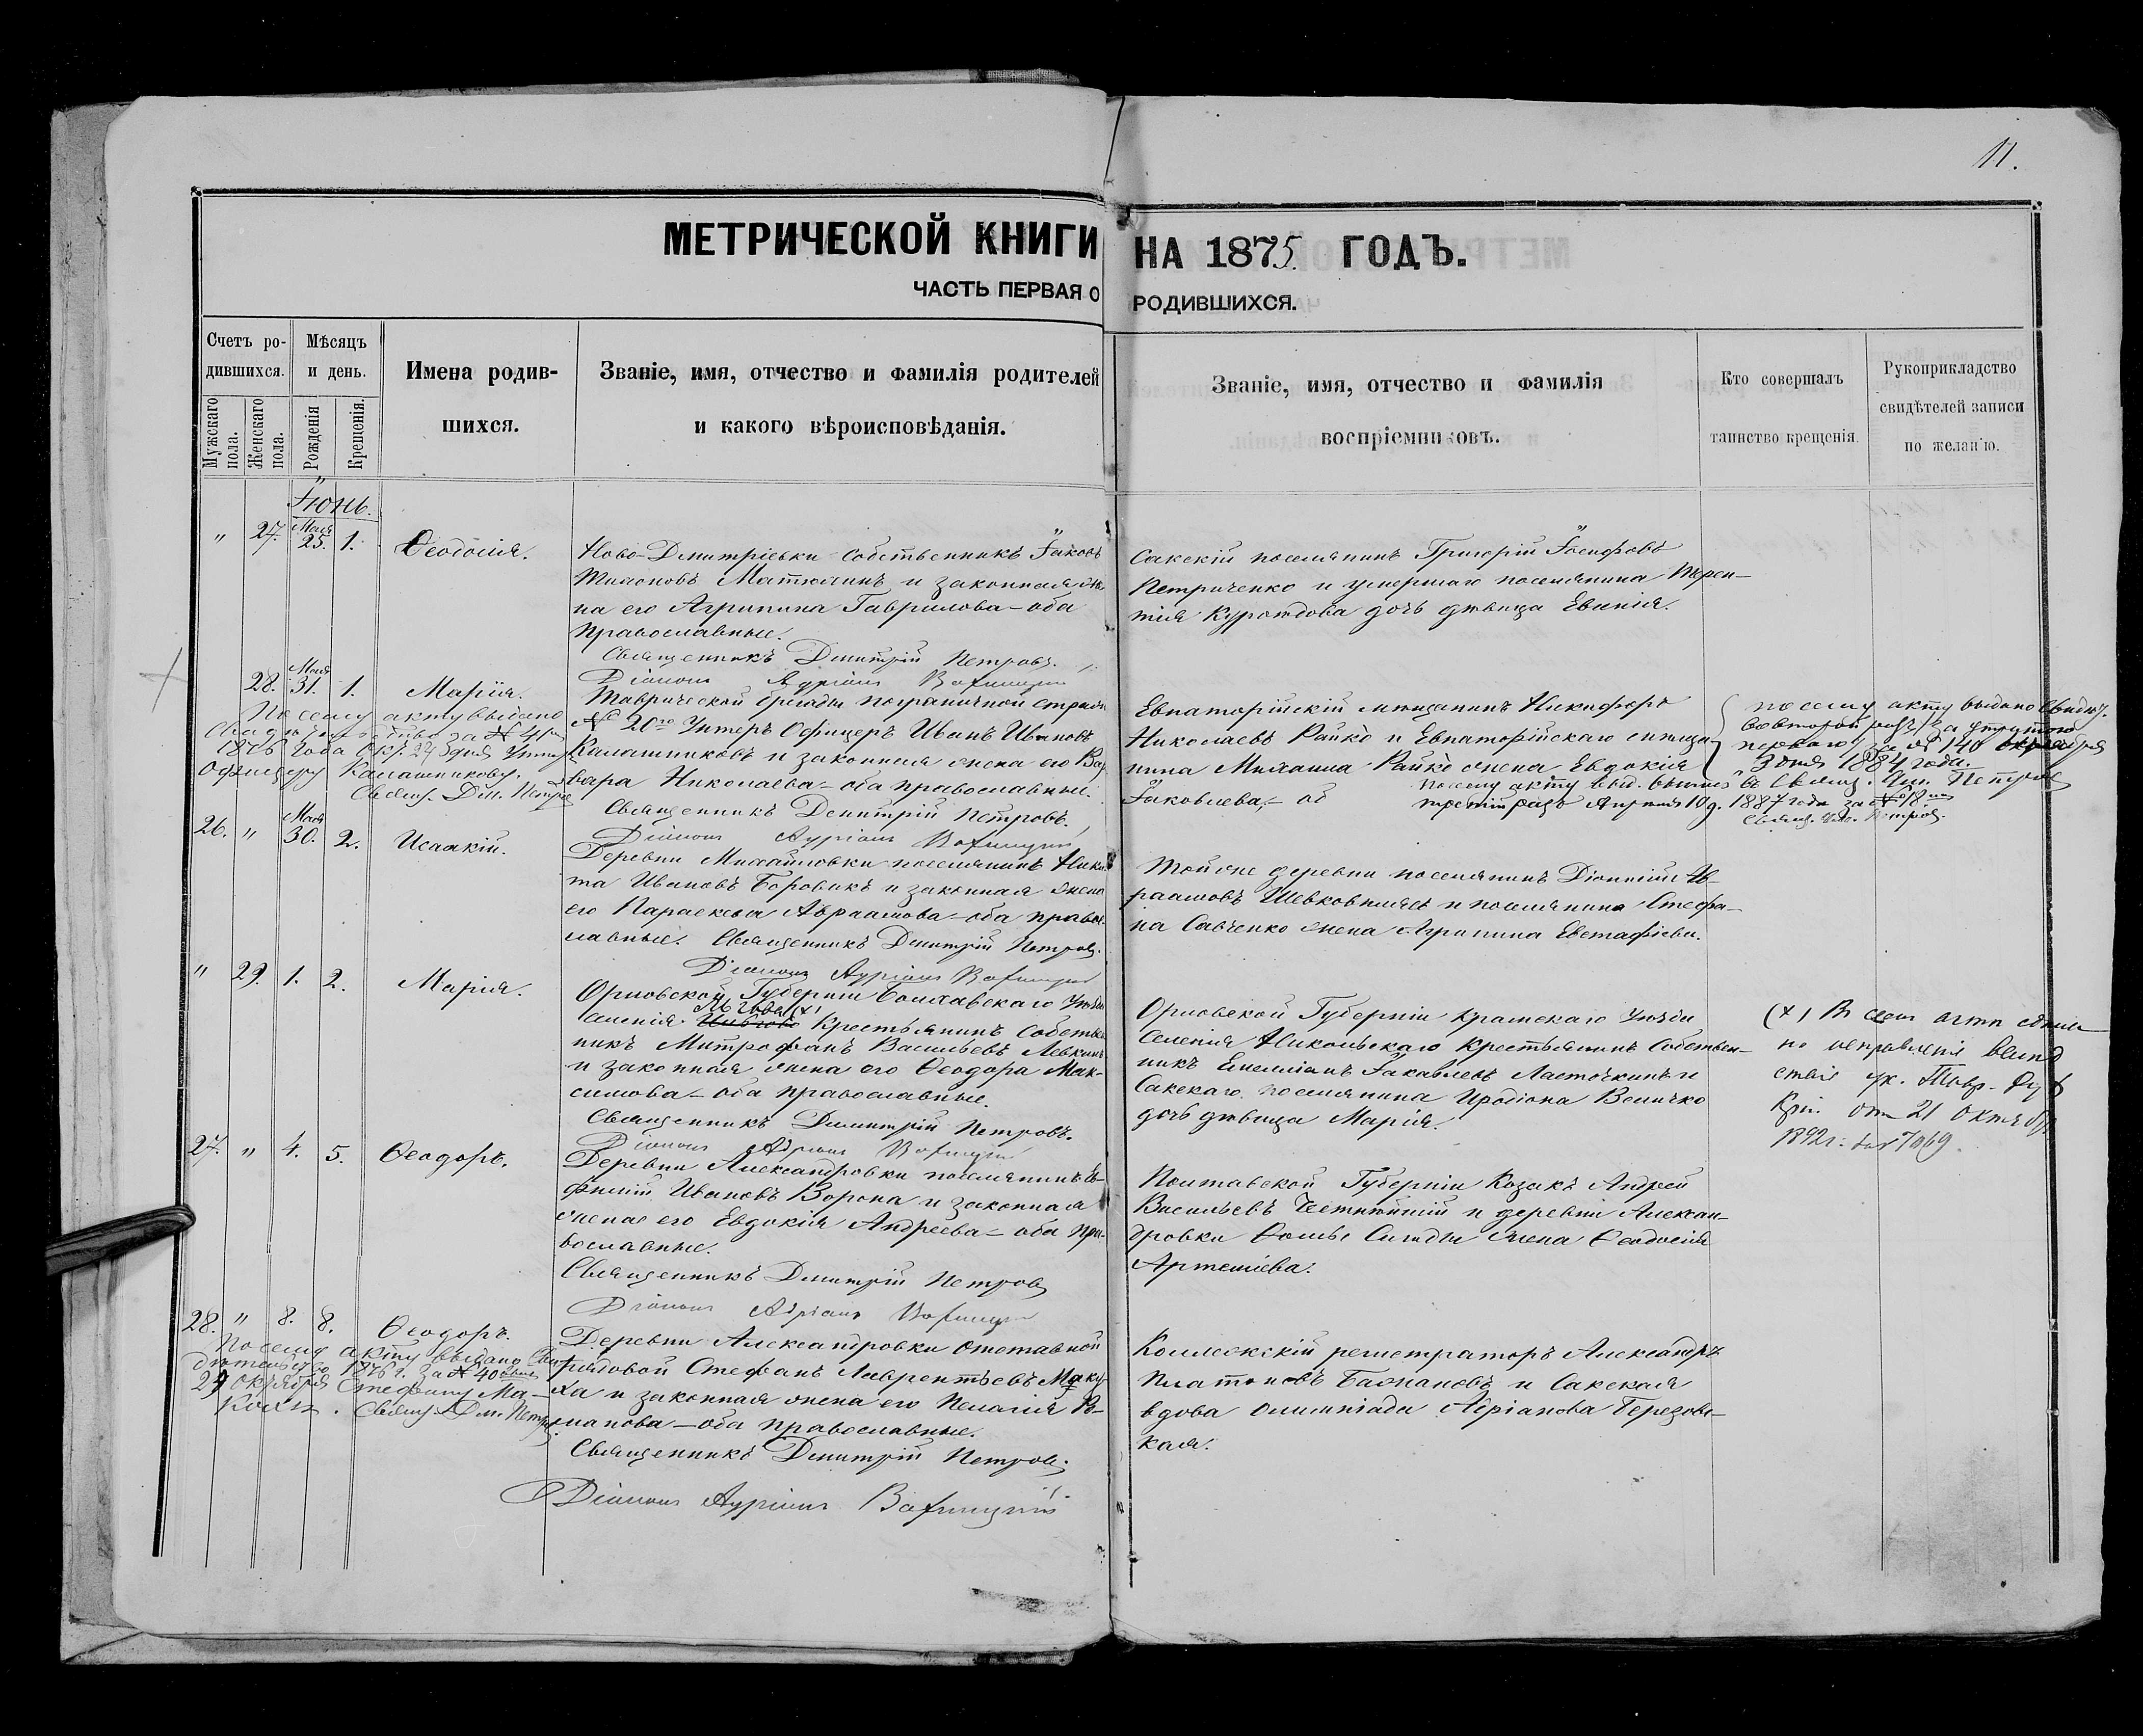 11.
МЕТРИЧЕСКОЙ КНИГИ НА 1875 ГОДЪ.
ЧАСТЬ ПЕРВАЯ О РОДИВШИХСЯ.
Счетъ ро-
дившихся.
Мужскаго пола.
Женскаго пола.
Мѣсяцъ
и день.
Рожденія
Крещенія.
Имена родив-
шихся.
Званіе, имя, отчество и фамилія родителей
и какого вѣроисповѣданія.
Званіе, имя, отчество и фамилія
воспріемниковъ.
Кто совершалъ
таинство крещенія.
Рукоприкладство
свидѣтелей записи
по желанію.
Іюнь.
" 27. Мая 25. 1. Ѳеодосія.
Ново-Дмитріевки собственникъ Іаковъ
и законная же-
на его Агрипина Гаврилова – оба
православные.
Священникъ Димитрій Петровъ.
Сакскій поселянинъ Григорій Іосифовъ
Петриченко и умершаго поселянина Терен-
тія дочь дѣвица Евгенія.
28. Мая 31. 1. Марія.
По сему акту выдано
1876 года
Офицеру Калашникову.
Свящ. Дим. Петров
Таврической бригады пограничной стражи
№ 20го Унтеръ Офицеръ Иванъ Ивановъ
Калашниковъ и законная жена его Вар-
вара Николаева – оба православные.
Священникъ Димитрій Петровъ.
Евпаторійскій мѣщанинъ Никифоръ
Николаевъ Райко и Евпаторійскаго мѣща-
нина Михаила Райко жена Евдокія
Іаковлева. – об
по сему акту выдано свидѣт.
во второй разъ, за утратою
перваго, за № 140
3 дня 1884 года.
Свящ. Петров
По сему акту выд. выпись въ
третій разъ Апрѣля 10 д. 1887 года за № 18
26. " Мая 30. 2. Исаакій.
Деревни Михайловки поселянинъ Ники-
та Ивановъ Боровикъ и законная жена
его Параскева Авраамова – оба правос-
лавные. Священникъ Димитрій Петровъ.
Той же деревни поселянинъ Діонисій Ав-
раамовъ и поселянина Стефа-
на Савченко жена Агрипина Евстафіева.
" 29. 1. 2. Марія.
Орловской Губерніи Болховскаго Уѣзда
селенія (х) Крестьянинъ Собствен-
никъ Митрофанъ Васильевъ Левкинъ
и законная жена его Ѳеодора Мак-
симова – оба православные.
Священникъ Димитрій Петровъ.
Орловской Губерніи Кромскаго Уѣзда
селенія Никольскаго Крестьянинъ Собствен-
никъ Емеліанъ Іаковлевъ Ласточкинъ и
Сакскаго поселянина Иродіона Величко
дочь дѣвица Марія.
(х) В сем акти
но исправленія вслѣд
ствіе ук. Тавр. Дух
Кон. от 21 октября
1892 г. за № 7069.
27. " 4. 5. Ѳеодоръ.
Деревни Александровки поселянинъ Ев-
фимій Ивановъ Ворона и законная
жена его Евдокія Андреева – оба пра-
вославные.
Священникъ Димитрій Петровъ
Полтавской Губерніи Козакъ Андрей
Васильевъ и деревни Алексан-
дровки жена Ѳеодосія
Артеміева.
28. " 8. 8. Ѳеодоръ.
По сему акту выдано Сви-
дѣтельство 1876 г. за № 40
29 октября Стефану Ма-
кухѣ. Свящ. Дим. Петров.
Деревни Александровки отставной
рядовой Стефанъ Лаврентьевъ Маку-
ха и законная жена его Пелагія Ро-
манова – оба православные.
Священникъ Димитрій Петровъ.
Коллежскій регистраторъ Александръ
Платоновъ и Сакская
вдова Олимпіада Адріанова Березовс-
кая.